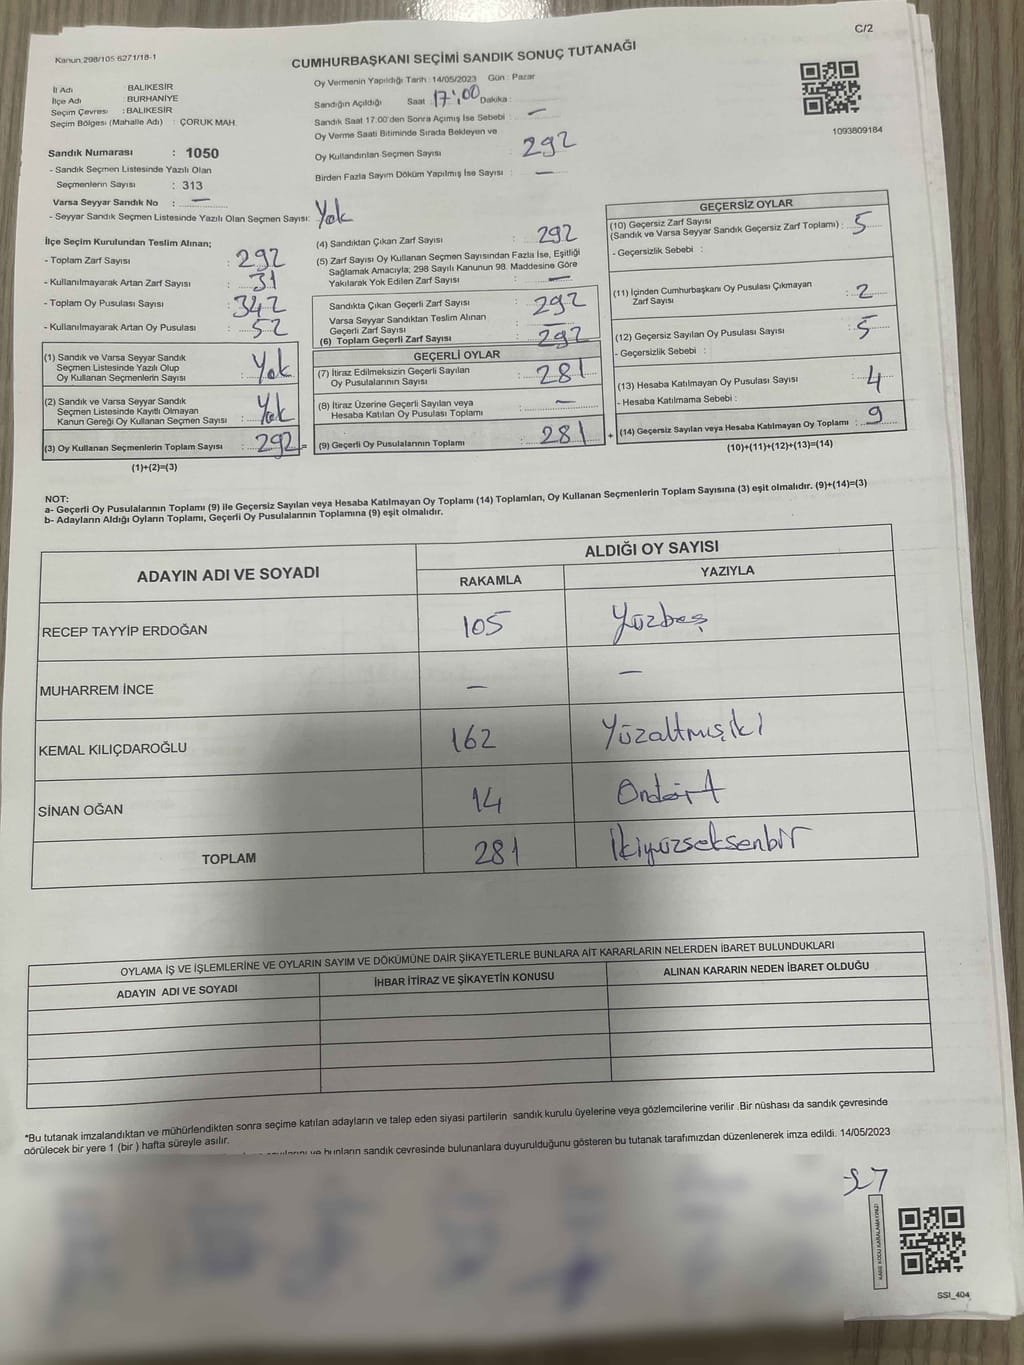 C/2
Kanun:298/105 6271/18-1
CUMHURBAŞKANI SEÇİMİ SANDIK SONUÇ TUTANAĞI
İl Adı : BALIKESİR
İlçe Adı : BURHANİYE
Seçim Çevresi : BALIKESİR
Seçim Bölgesi (Mahalle Adı) : ÇORUK MAH.
Oy Vermenin Yapıldığı Tarih : 14/05/2023 Gün : Pazar
Sandığın Açıldığı Saat : 17:00 Dakika :
Sandık Saat 17:00'den Sonra Açımış İse Sebebi : —
Oy Verme Saati Bitiminde Sırada Bekleyen ve
Oy Kullandırılan Seçmen Sayısı : 292
Birden Fazla Sayım Döküm Yapılmış İse Sayısı : —
1093809184
Sandık Numarası : 1050
- Sandık Seçmen Listesinde Yazılı Olan
Seçmenlerin Sayısı : 313
Varsa Seyyar Sandık No : —
- Seyyar Sandık Seçmen Listesinde Yazılı Olan Seçmen Sayısı: Yok
İlçe Seçim Kurulundan Teslim Alınan;
- Toplam Zarf Sayısı : 292
- Kullanılmayarak Artan Zarf Sayısı : 31
- Toplam Oy Pusulası Sayısı : 342
- Kullanılmayarak Artan Oy Pusulası : 52
(1) Sandık ve Varsa Seyyar Sandık
Seçmen Listesinde Yazılı Olup
Oy Kullanan Seçmenlerin Sayısı : Yok
(2) Sandık ve Varsa Seyyar Sandık
Seçmen Listesinde Kayıtlı Olmayan
Kanun Gereği Oy Kullanan Seçmen Sayısı : Yok
(3) Oy Kullanan Seçmenlerin Toplam Sayısı : 292 =
(1)+(2)=(3)
(4) Sandıktan Çıkan Zarf Sayısı : 292
(5) Zarf Sayısı Oy Kullanan Seçmen Sayısından Fazla İse, Eşitliği
Sağlamak Amacıyla; 298 Sayılı Kanunun 98. Maddesine Göre
Yakılarak Yok Edilen Zarf Sayısı : —
Sandıkta Çıkan Geçerli Zarf Sayısı : 292
Varsa Seyyar Sandıktan Teslim Alınan
Geçerli Zarf Sayısı : —
(6) Toplam Geçerli Zarf Sayısı : 292
GEÇERLİ OYLAR
(7) İtiraz Edilmeksizin Geçerli Sayılan
Oy Pusulalarının Sayısı : 281
(8) İtiraz Üzerine Geçerli Sayılan veya
Hesaba Katılan Oy Pusulası Toplamı : —
(9) Geçerli Oy Pusulalarının Toplamı : 281 +
GEÇERSİZ OYLAR
(10) Geçersiz Zarf Sayısı
(Sandık ve Varsa Seyyar Sandık Geçersiz Zarf Toplamı) : 5
- Geçersizlik Sebebi :
(11) İçinden Cumhurbaşkanı Oy Pusulası Çıkmayan
Zarf Sayısı : 2
(12) Geçersiz Sayılan Oy Pusulası Sayısı : 5
- Geçersizlik Sebebi :
(13) Hesaba Katılmayan Oy Pusulası Sayısı : 4
- Hesaba Katılmama Sebebi :
(14) Geçersiz Sayılan veya Hesaba Katılmayan Oy Toplamı : 9
(10)+(11)+(12)+(13)=(14)
NOT:
a- Geçerli Oy Pusulalarının Toplamı (9) ile Geçersiz Sayılan veya Hesaba Katılmayan Oy Toplamı (14) Toplamları, Oy Kullanan Seçmenlerin Toplam Sayısına (3) eşit olmalıdır. (9)+(14)=(3)
b- Adayların Aldığı Oyların Toplamı, Geçerli Oy Pusulalarının Toplamına (9) eşit olmalıdır.
ADAYIN ADI VE SOYADI
ALDIĞI OY SAYISI
RAKAMLA YAZIYLA
RECEP TAYYİP ERDOĞAN 105 Yüzbeş
MUHARREM İNCE — —
KEMAL KILIÇDAROĞLU 162 Yüzaltmışiki
SİNAN OĞAN 14 Ondört
TOPLAM 281 İkiyüzseksenbir
OYLAMA İŞ VE İŞLEMLERİNE VE OYLARIN SAYIM VE DÖKÜMÜNE DAİR ŞİKAYETLERLE BUNLARA AİT KARARLARIN NELERDEN İBARET BULUNDUKLARI
ADAYIN ADI VE SOYADI İHBAR İTİRAZ VE ŞİKAYETİN KONUSU ALINAN KARARIN NEDEN İBARET OLDUĞU
*Bu tutanak imzalandıktan ve mühürlendikten sonra seçime katılan adayların ve talep eden siyasi partilerin sandık kurulu üyelerine veya gözlemcilerine verilir .Bir nüshası da sandık çevresinde
görülecek bir yere 1 (bir ) hafta süreyle asılır.
ve bunların sandık çevresinde bulunanlara duyurulduğunu gösteren bu tutanak tarafımızdan düzenlenerek imza edildi. 14/05/2023
KARE KODU KARALAMAYINIZ!
SSI_404